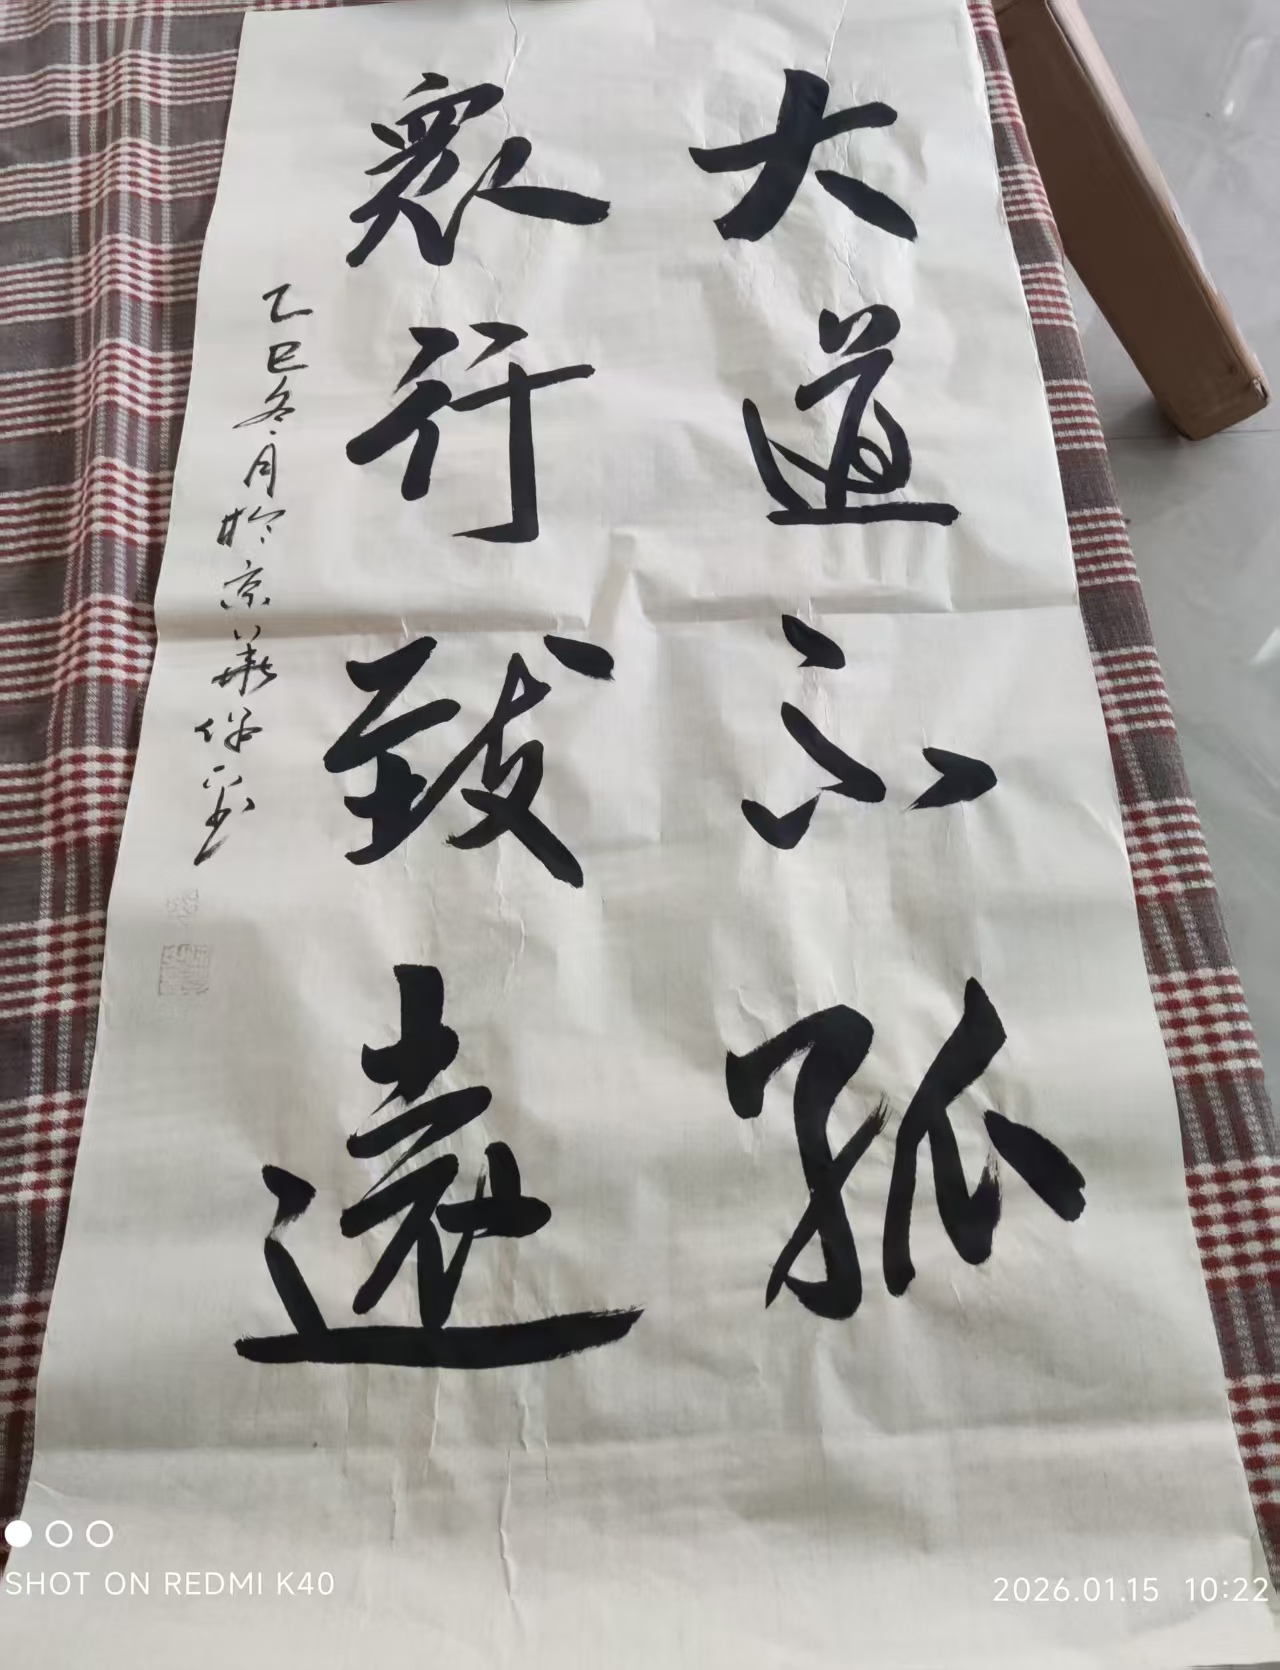 大道不孤
眾行致遠
乙巳冬月於京華保平書
SHOT ON REDMI K40
2026.01.15 10:22